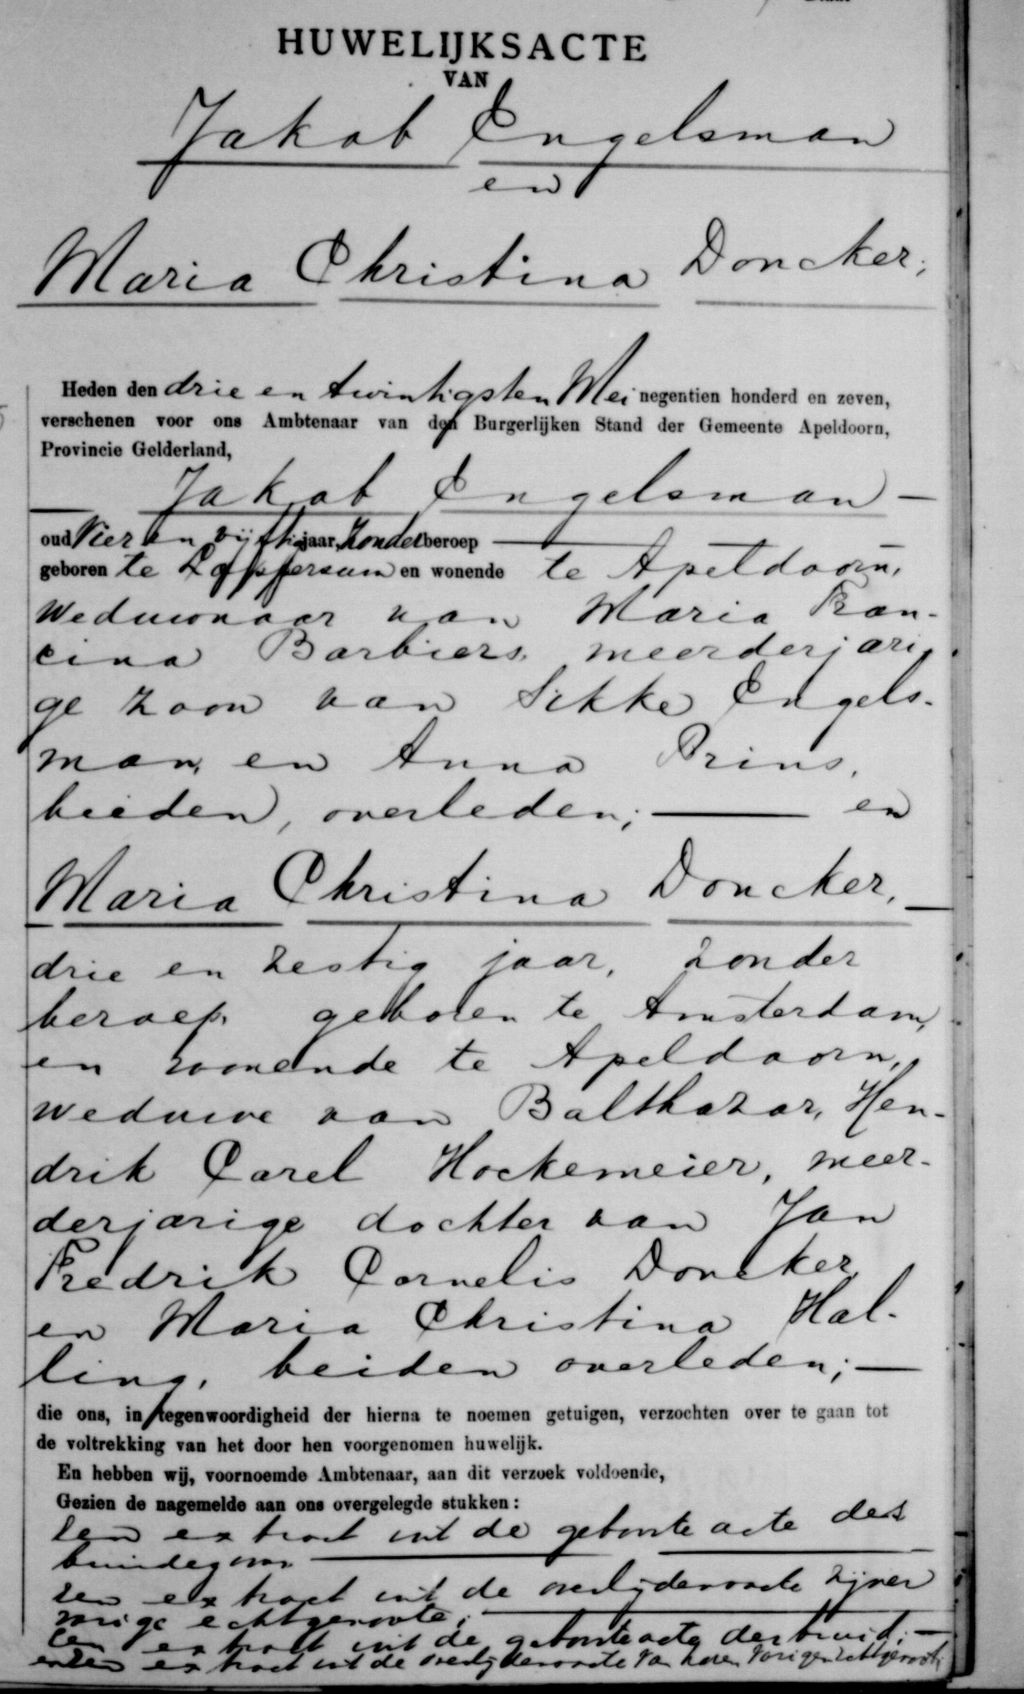 HUWELIJKSACTE
VAN
Jakob Engelsman
en
Maria Christina Doncker;
Heden den drie en twintigsten Mei negentien honderd en zeven,
verschenen voor ons Ambtenaar van den Burgerlijken Stand der Gemeente Apeldoorn,
Provincie Gelderland,
Jakob Engelsman
oud Vier en vijftig jaar, Zonder beroep
geboren te Loppersum en wonende te Apeldoorn,
Weduwnaar van Maria Fran-
cina Barbiers, meerderjari-
ge zoon van Sikke Engels-
man, en Anna Prins,
beiden, overleden; en
Maria Christina Doncker,
drie en zestig jaar, zonder
beroep, geboren te Amsterdam,
en wonende te Apeldoorn,
weduwe van Balthazar, Hen-
drik Carel Hockemeier, meer-
derjarige dochter van Jan
Fredrik Cornelis Doncker
en Maria Christina Hal-
ling, beiden overleden;
die ons, in tegenwoordigheid der hierna te noemen getuigen, verzochten over te gaan tot
de voltrekking van het door hen voorgenomen huwelijk.
En hebben wij, voornoemde Ambtenaar, aan dit verzoek voldoende,
Gezien de nagemelde aan ons overgelegde stukken:
Een extract uit de geboorte acte des
bruidegoms
Een extract uit de overlijdensacte zijner
vorige echtgenoote;
Een extract uit de geboorteacte der bruid;
en een extract uit de overlijdensacte van haren vorigen echtgenoot;